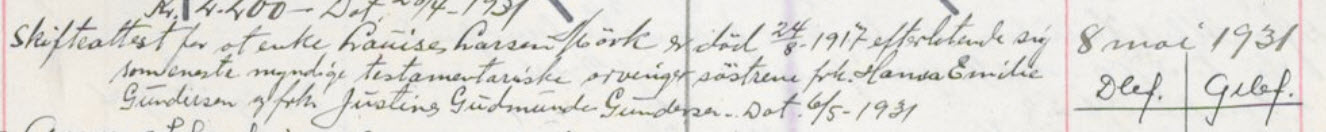 Kr. 4.200 - Dat. 20/4 - 1931
Skifteattest for at enke Louise Larsen Mörk er död 24/8 - 1917 efterlatende sig 8 mai 1931
som eneste myndige testamentariske arvinger söstrene frk. Hanna Emilie
Gundersen og frk. Justine Gudmunda Gundersen. Dat. 6/5 - 1931
Dlef. Gelef.